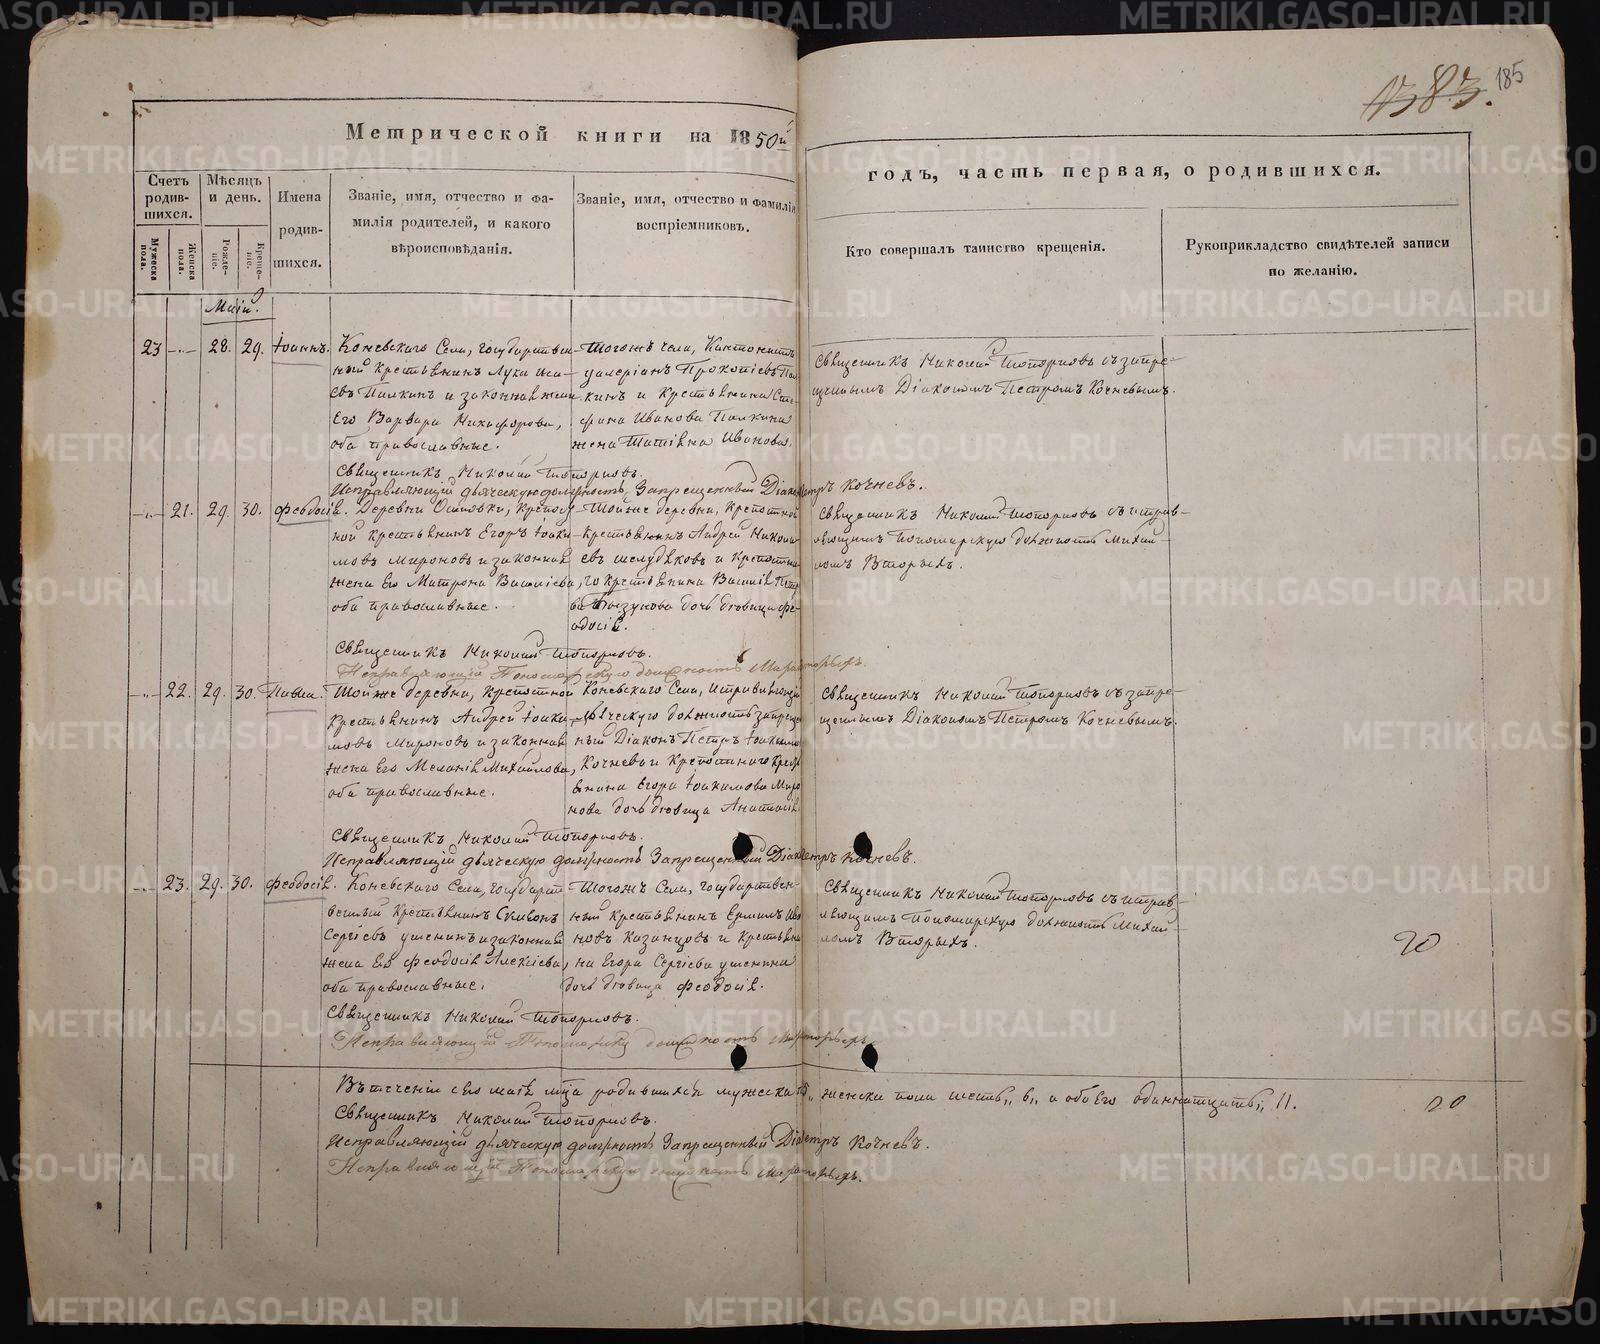 1383. 185
Метрической книги на 1850й
годъ, часть первая, о родившихся.
Счетъ родив-шихся.
Мужеска пола.
Женска пола.
Мѣсяцъ и день.
Рожде-ніе.
Креще-ніе.
Имена родив-шихся.
Званіе, имя, отчество и фа-
милія родителей, и какого
вѣроисповѣданія.
Званіе, имя, отчество и фамилія
воспріемниковъ.
Кто совершалъ таинство крещенія.
Рукоприкладство свидѣтелей записи
по желанію.
Маій.
23 -„- 28. 29. Іоаннъ.
Коневскаго Села, государствен
ный крестьянинъ Лука
евъ Палкинъ и законная жена
Его Варвара Никифорова,
оба православные.
Тогожъ села, Кантонистъ
Прокопіевъ Пал
кинъ и крестьянина Сте-
фана Иванова Палкина
жена Татіяна Иванова.
Священникъ Николай Топорковъ съ запре-
щеннымъ Діакономъ Петромъ Кочневымъ.
Священникъ Николай Топорковъ.
Исправляющій дьяческую должность Запрещенный Діаконъ Петръ Кочневъ.
-„- 21. 29. 30. Феодосія.
Деревни Осиновки, Крѣпост
ной крестьянинъ Егоръ Іоаки-
мовъ Мироновъ и законная
жена Его Матрона Василіева,
оба православные.
Тойже деревни, Крѣпостной
Крестьянинъ Андрей Никола
евъ Шелудяковъ и Крѣпостна
го крестьянина Василія Петро
ва дочь дѣвица Фе-
одосія.
Священникъ Николай Топорковъ съ исправ-
ляющимъ Пономарскую должность Михаи-
ломъ Вторыхъ.
Священникъ Николай Топорковъ.
Исправляющій Пономарскую должность Михаилъ Вторыхъ.
-„- 22. 29. 30. Павла.
Тойже деревни, Крѣпостной
Крестьянинъ Андрей Іоаки-
мовъ Мироновъ и законная
жена Его Меланія Михайлова,
оба православные.
Коневскаго Села, Исправляющій
дьяческую должность запрещен
ный Діаконъ Петръ Іоакимовъ
Кочневъ и Крѣпостнаго Кресть
янина Егора Іоакимова Миро
нова дочь дѣвица Анастасія.
Священникъ Николай Топорковъ съ запре-
щеннымъ Діакономъ Петромъ Кочневымъ.
Священникъ Николай Топорковъ.
Исправляющій дьяческую должность Запрещенный Діаконъ Петръ Кочневъ.
-„- 23. 29. 30. Феодосія.
Коневскаго Села, Государст
венный Крестьянинъ Сумеонъ
Сергіевъ Ушенинъ и законная
жена Его Феодосія Алексіева,
оба православные.
Тогожъ Села, Государствен-
ный крестьянинъ Ермилъ Ива
новъ Казанцовъ и Крестьяни
на Егора Сергіева Ушенина
дочь дѣвица Феодосія.
Священникъ Николай Топорковъ съ исправ-
ляющимъ Пономарскую должность Михаи-
ломъ Вторыхъ.
20
Священникъ Николай Топорковъ.
Исправляющій Пономарску должность Михаилъ Вторыхъ.
Въ теченіи сего маія мца родившихся мужеска 5„ женска пола шесть„ 6„ а обоего одиннатцать„ 11.
20
Священникъ Николай Топорковъ.
Исправляющій дьяческую должность Запрещенный Діаконъ Петръ Кочневъ.
Исправляющій Пономарскую должность Михаилъ Вторыхъ.
METRIKI.GASO-URAL.RU